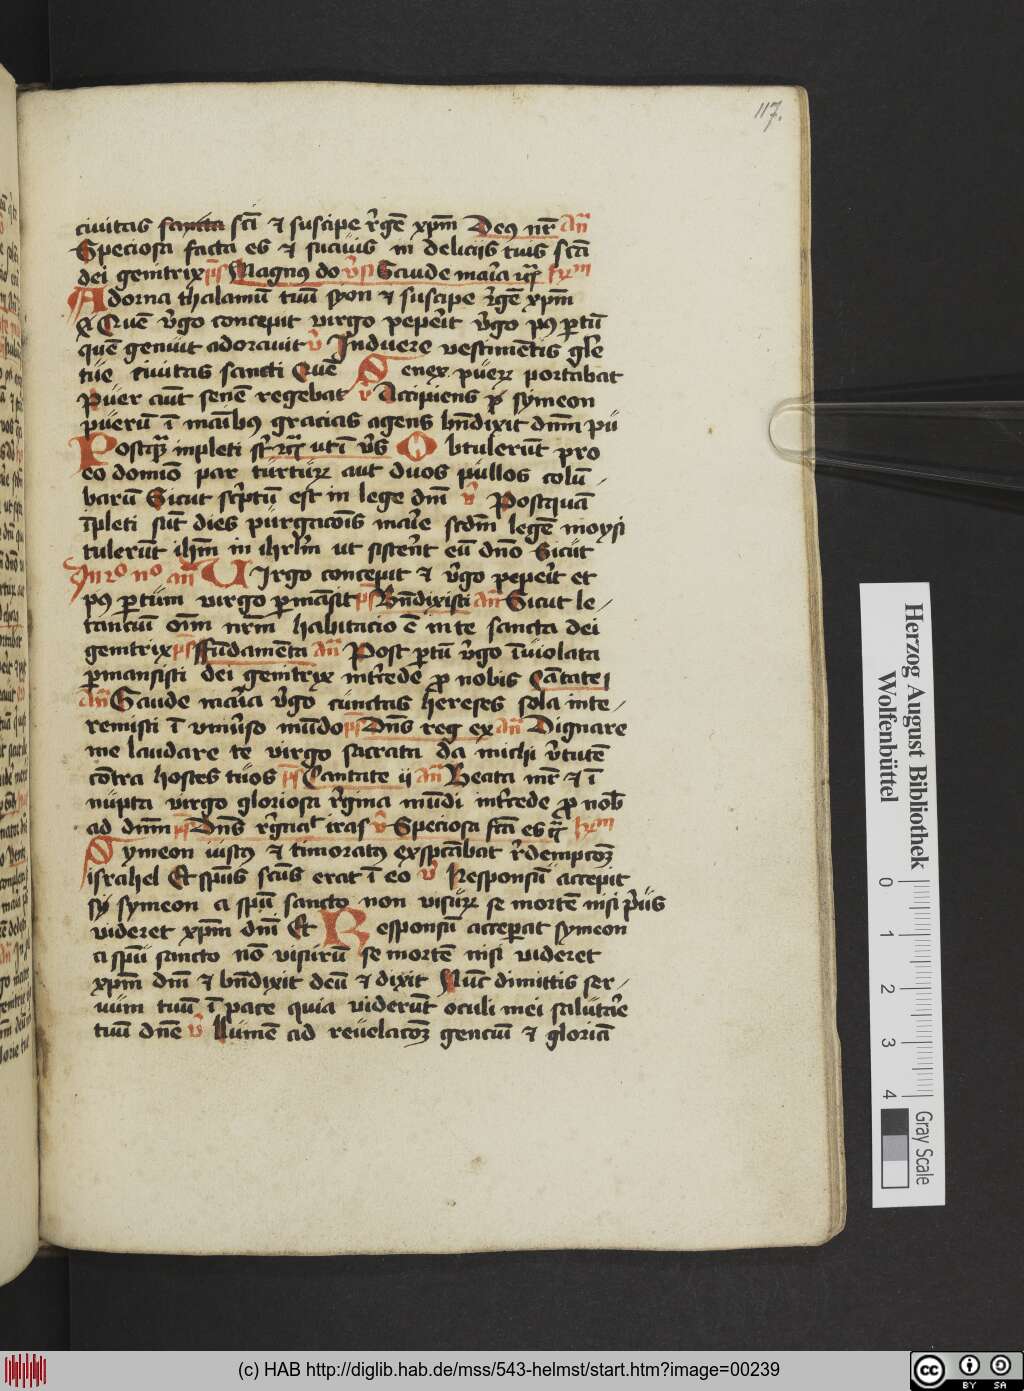 117.
ciuitas sancta scī ⁊ suscipe r̄gē xp̄m Deꝰ nr̄ an̄
Speciosa facta es ⁊ suauis in deliciis tuis scā
dei genitrix ps̄ Magnꝰ do v̄s Gaude mar̄ia
Adorna thalamū tuū syon ⁊ suscipe r̄gē xp̄m
Quē v̄go concepit virgo pepe͛it v̄go pꝰ ꝑtū
quē genuit adorauit v̄ Induere vestimētis gl̄e
tue ciuitas sancti Quē Senex pueꝝ portabat
Puer aūt senē regebat v̄ Accipiens symeon
puerū ī manibꝰ gracias agens bn̄dixit dn̄m pu
Postqȝ inpleti sr̄ v̄s Obtulerūt pro
eo domīo par turtuꝝ aut duos pullos colū
barū Sicut sc̄ptū est in lege dn̄i v̄ Postquā
īpleti sūt dies purgacōis mar̄ie scd̄m legē moysi
tulerūt ih̄m in ihrl̄m ut sistere͛t eū dn̄o Sicut
In ro no an̄ Virgo concepit ⁊ v̄go pepe͛it et
pꝰ ꝑtum virgo ꝑmāsit ps̄ Bn̄dixisti an̄ Sicut le
tanciū oīm nr̄m habitacio ē in te sancta dei
genitrix ps̄ ffūdamēta an̄ Post ꝑtū v̄go īuiolata
ꝑmansisti dei genitrix int͛cede ꝓ nobis Cātate i
an̄ Gaude mar̄ia v̄go cunctas hereses sola inte
remisti ī vniu͛so mūdo ps̄ Dn̄s reg ex an̄ Dignare
me laudare te virgo sacrata da michi v̄tutē
cōtra hostes tuos ps̄ Cantate ij an̄ Beata mr̄ ⁊ ī
nupta virgo gloriosa r̄gina mūdi int͛cede ꝓ nob̄
ad dn̄m ps̄ Dn̄s r̄gna iras v̄ Speciosa fcā es
Symeon iustꝰ ⁊ timoratꝰ exspctābat r̄dempcōȝ
israhel Et sp̄us scūs erat ī eo v̄ Responsū accepit
sy symeon a sp̄u sancto non visuꝝ se mortē nisi p̄us
videret xp̄m dn̄i Et Responsū acceꝑat symeon
a sp̄u sancto nō visurū se mortē nisi videret
xp̄m dn̄i ⁊ bn̄dixit deū ⁊ dixit Nūc dimittis ser
uum tuū ī pace quia viderūt oculi mei salutar̄e
tuū dn̄e v̄ llumē ad reuelacōȝ genciū ⁊ gloriā
Herzog August Bibliothek
Wolfenbüttel
0 1 2 3 4
Gray Scale
(c) HAB http://diglib.hab.de/mss/543-helmst/start.htm?image=00239
cc BY SA